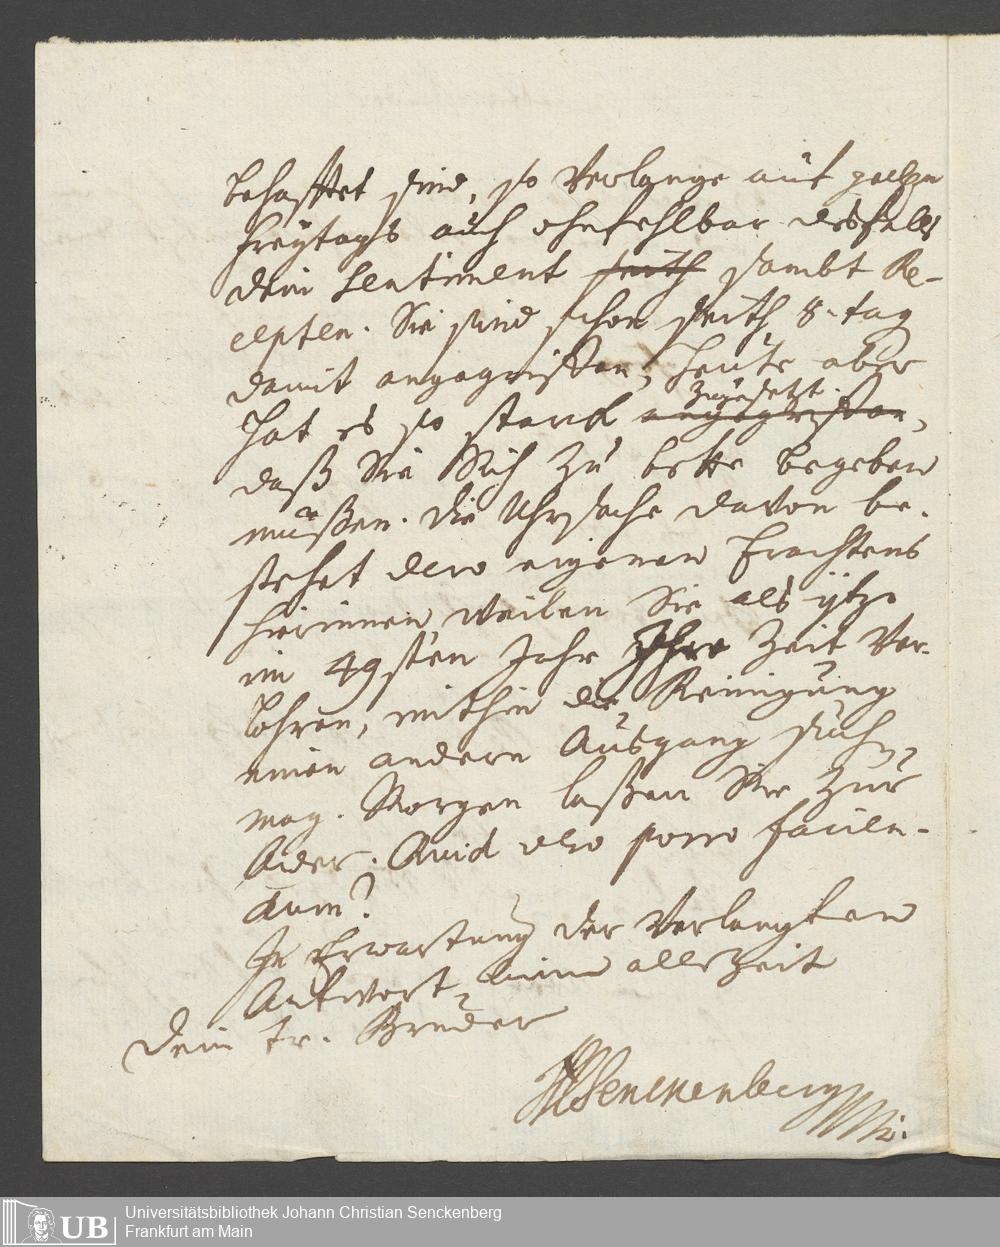 behafftet sind, so verlange auf
Freytags auch ohnfehlbar desfalls
dein Sentiment seith sambt Re-
cepten. Sie sind schon seith 8. tag
damit angegriffen, heute aber
zugesetzt
hat es so starck angegriffen,
daß Sie Sich zu bette begeben
müßen. Die Uhrsache davon be-
stehet dero eigenen Erachtens
hierinnen, weilen Sie als itzo
im 49sten Jahr Ihre Zeit ver-
lohren, mithin die Reinigung
einen andern Ausgang suchen
mag. Morgen laßen Sie zur
Ader. Quid vero porro facien-
dum?
In Erwartung der verlangten
Antwort, allezeit
Dein tr. Bruder
Senckenberg
UB
Universitätsbibliothek Johann Christian Senckenberg
Frankfurt am Main